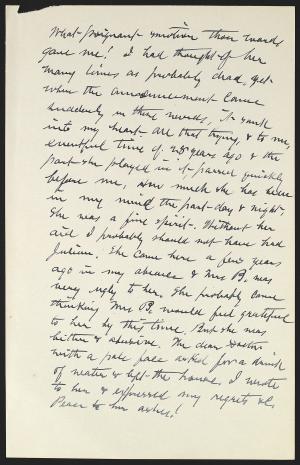 What poignant emotion those words
gave me! I had thought of her
many times as probably dead, yet
when the announcement came
suddenly in these words, it sank
into my heart. All that trying, & to me,
eventful time of 25 years ago & the
part she played in it, passed quickly
before me, How much she has been
in my mind the past day & night.
She was a fine spirit. Without her
aid I probably should not have had
Julian. She came here a few years
ago in my absence & Mrs B. was
very ugly to her. She probably came
thinking Mrs B. would feel grateful
to her by this time. But she was
bitter & abusive. The dear Doctor
with a pale face asked for a drink
of water & left the house. I wrote
to her & expressed my regrets &c.
Peace to her ashes!